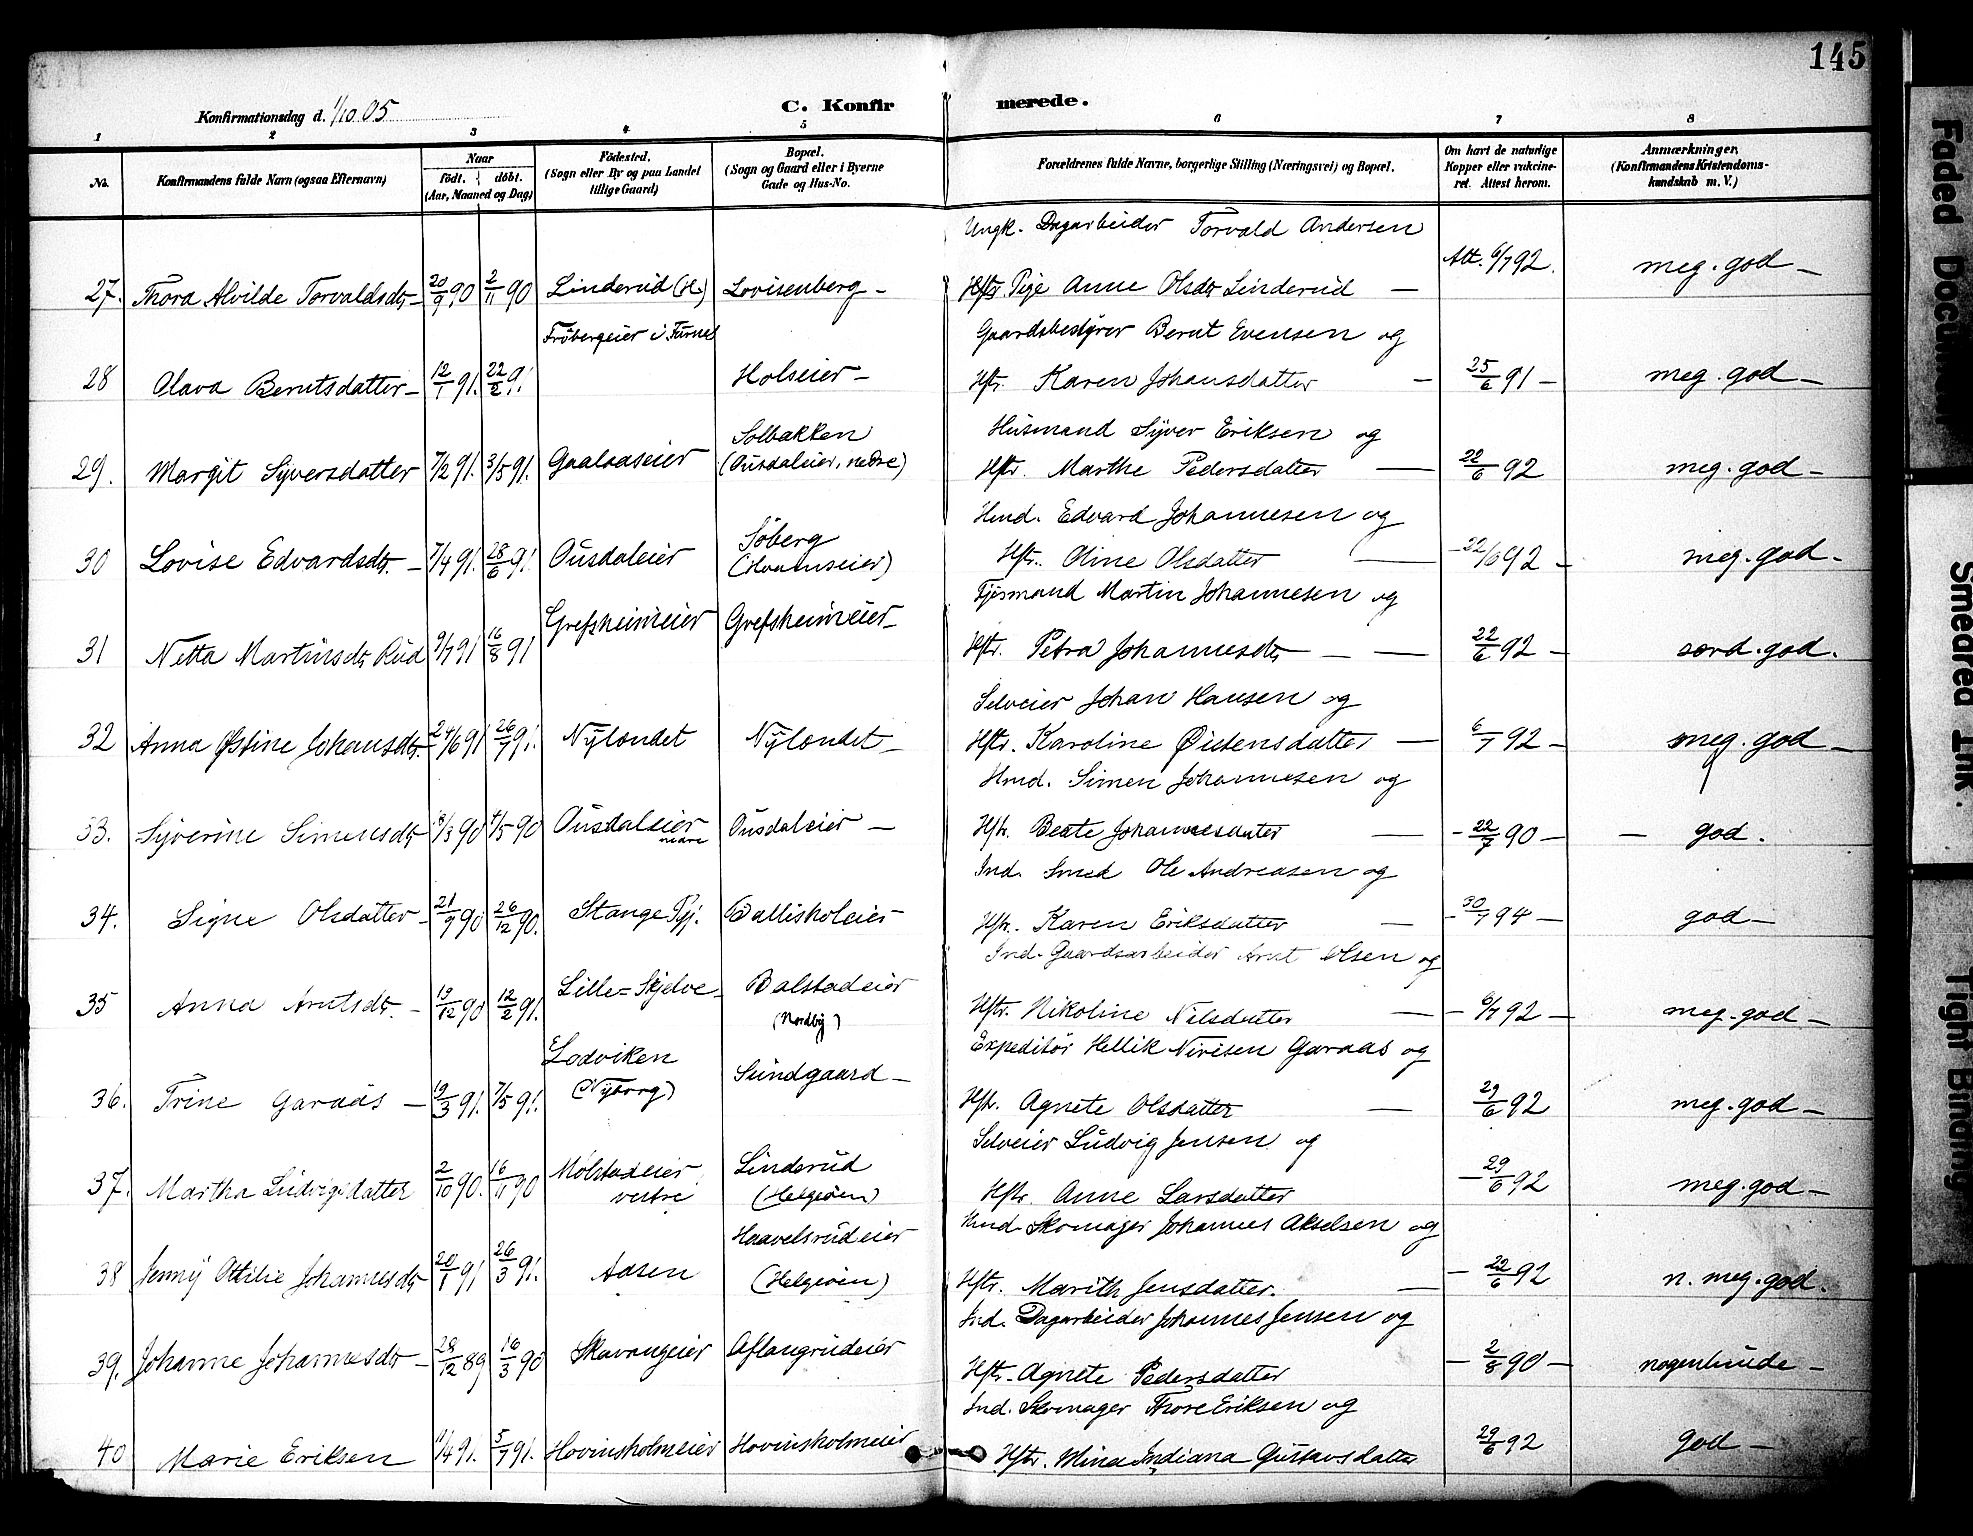 145
Konfirmationsdag d. 1/10 05
C. Konfirmerede.
1 2 3 4 5 6 7 8
No.
Konfirmandens fulde Navn (ogsaa Efternavn)
Naar
født. døbt.
(Aar, Maaned og Dag)
Födested.
(Sogn eller By og paa Landet
tillige Gaard)
Bopæl.
(Sogn og Gaard eller i Byerne
Gade og Hus-No.
Forældrenes fulde Navne, borgerlige Stilling (Næringsvei) og Bopæl.
Om havt de naturlige
Kopper eller vakcine-
ret. Attest herom.
Anmærkninger.
(Konfirmandens Kristendoms-
kundskab m. V.)
Ungk. Dagarbeider Torvald Andersen
27. Thora Alvilde Torvaldsdtr – 20/9 90 2/11 90 Linderud (H.) Lovisenberg – Pige Anne Olsdtr Linderud – Att. 6/7 92. meg. god –
Frøbergeier i Furnes Gaardsbestyrer Bernt Evensen og
28 Olava Berntsdatter – 12/1 91. 22/2 91 Holseier – Hstr. Karen Johansdatter – 25/6 91 – meg. god –
Solbakken Husmand Syver Eriksen og
29. Margit Syversdatter 7/2 91. 3/5 91. Gaalaaseier (Ousdaleier, nedre) Hstr. Marthe Pedersdatter – 22/6 92 meg. god –
Søberg Hmd. Edvard Johannesen og
30 Lovise Edvardsdtr. – 7/4 91. 28/6 91 Ousdaleier Hstr. Oline Olsdatter – 22/6 92 – meg. god –
Martin Johannesen og
31 Netta Martinsdtr Rud 9/7 91 16/8 91 Grefsheimeier Grefsheimeier – Hstr. Petra Johannesdtr – 22/6 92 – særd. god.
Selveier Johan Hansen og
32 Anna Østine Johansdtr. 24/6 91 26/7 91. Nylændet Nylændet – Hstr. Karoline Øistensdatter – 6/7 92 – meg. god –
Hmd. Simen Johannesen og
33. Syverine Simensdtr /3 90 4/5 90 Ousdaleier nedre Ousdaleier – Hstr. Beate Johannesdatter – 22/7 90 – god.
Ind. Smed Ole Andreasen og
34. Signe Olsdatter – 21/9 90 26/12 90. Stange Pgj. Ballisholeier – Hstr. Karen Eriksdatter – 30/7 94 – god –
Ind. Gaardsarbeider Arnt Olsen og
35 Anna Arntsdtr. – 19/12 90 12/2 91. Lille-Skjelve – Balstadeier (Nordby) Hstr. Nikoline Nilsdatter – 6/7 92 – meg. god –
Expeditør Hellik Nirisen Garaas og
36. Trine Garaas – 19/3 91. 7/5 91. Lodviken (Nyborg) Sundgaard – Hstr. Agnete Olsdatter – 29/6 92 meg. god –
Selveier Ludvig Jensen og
37. Martha Ludvigsdatter 2/10 90. 16/11 90 Molstadeier vestre Linderud (Helgeøen) Hstr. Anne Larsdatter – 29/6 92 meg. god –
Hmd. Skomager Johannes Akselsen og
38 Jenny Ottilie Johannesdtr 20/1 91 26/3 91. Aasen Haavelsrudeier (Helgeøen) Hstr. Marith Jensdatter. – 22/6 92 n. meg. god.
Ind. Dagarbeider Johannes Jensen og
39. Johanne Johannesdtr – 28/12 89 16/3 90 Skavangeier Aflangrudeier Hstr. Agnete Pedersdatter – 2/8 90 – nogenlunde –
Ind. Skomager Thore Eriksen og
40 Marie Eriksen 11/4 91. 5/7 91. Hovinsholmeier Hovinsholmeier Hstr. Mina Indiana Gustavsdatter 29/6 92 God –
Faded Document
Smeared Ink.
Tight Binding